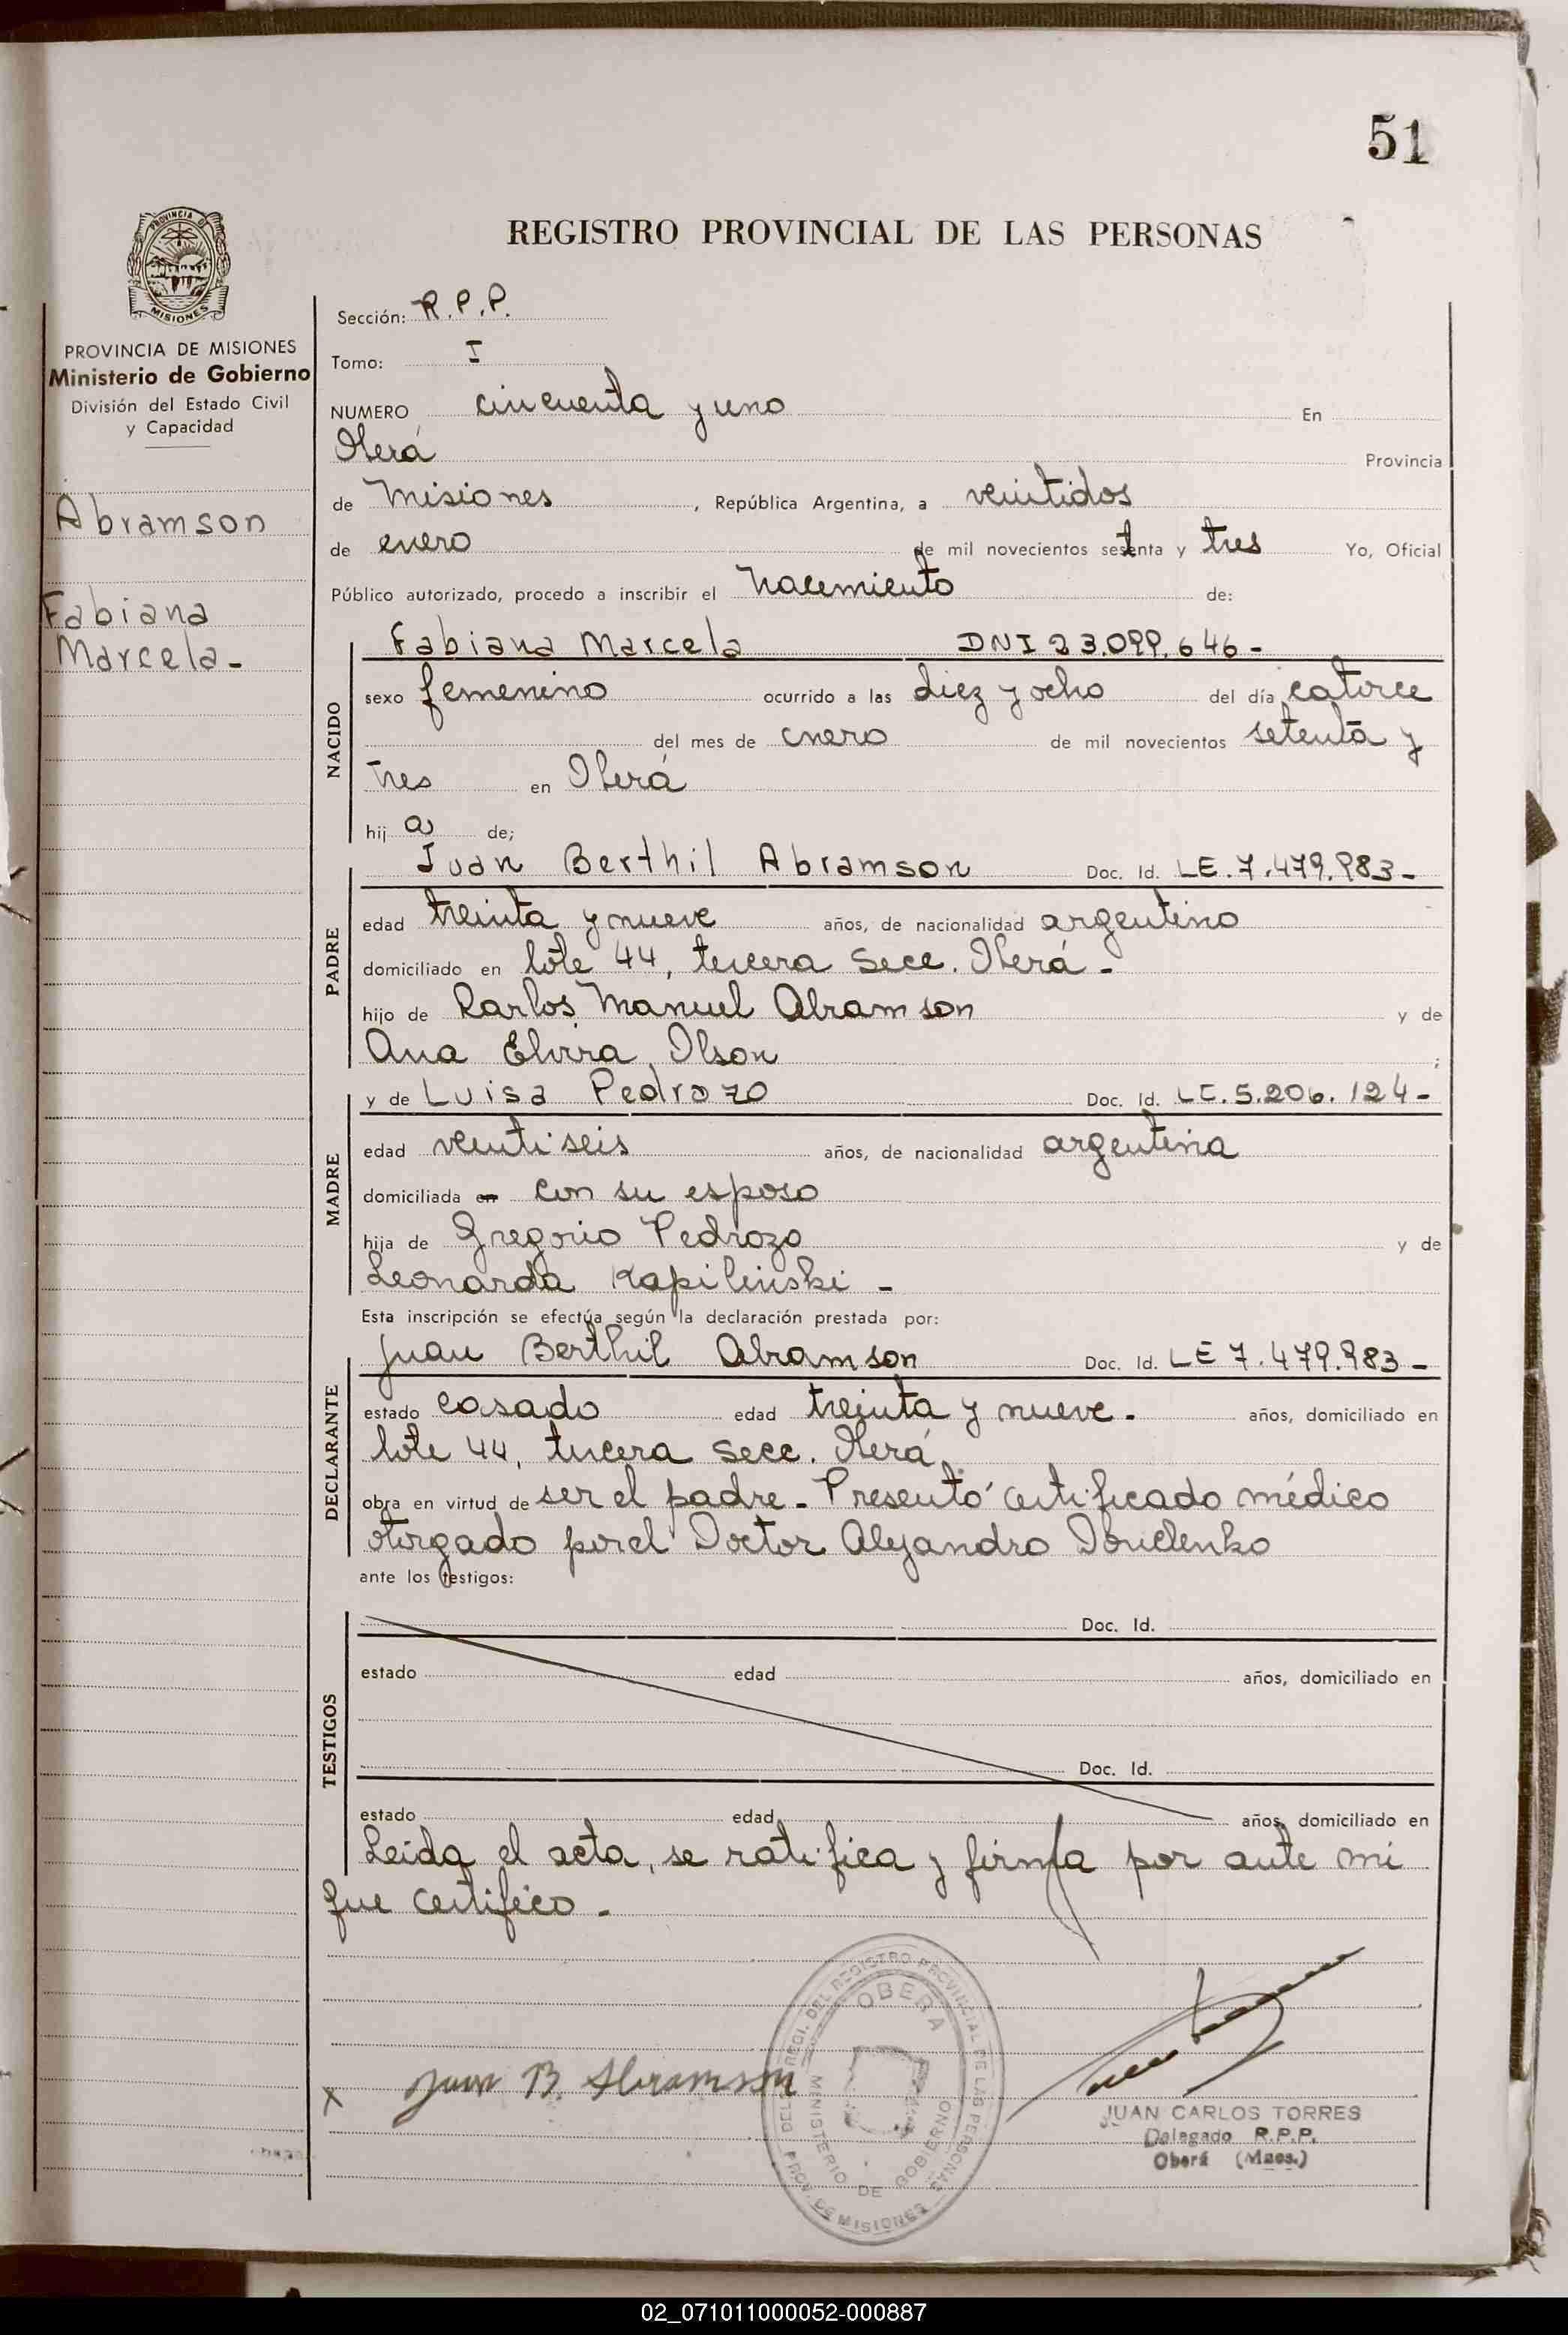 51
REGISTRO PROVINCIAL DE LAS PERSONAS
PROVINCIA DE MISIONES
Ministerio de Gobierno
División del Estado Civil
y Capacidad
Abramson
Fabiana
Marcela-
Sección: R.P.P.
Tomo: I
NUMERO cincuenta y uno En
Oberá Provincia
de Misiones, República Argentina, a veintidos
de enero de mil novecientos setenta y tres Yo, Oficial
Público autorizado, procedo a inscribir el nacimiento de:
NACIDO
Fabiana Marcela DNI 23.099.646-
sexo femenino ocurrido a las diez y ocho del día catorce
del mes de enero de mil novecientos setenta y
tres en Oberá
hij a de;
PADRE
Juan Berthil Abramson Doc. Id. LE.7.479.983-
edad treinta y nueve años, de nacionalidad argentino
domiciliado en lote 44, tercera Secc. Oberá-
hijo de Carlos Manuel Abramson y de
Ana Elvira Olson ;
MADRE
y de Luisa Pedrozo Doc. Id. LC.5.206.124-
edad veinti seis años, de nacionalidad argentina
domiciliada en con su esposo
hija de Gregorio Pedrozo y de
Leonarda Kapilinski-
Esta inscripción se efectúa según la declaración prestada por:
DECLARANTE
Juan Berthil Abramson Doc. Id. LE 7.479.983-
estado casado edad treinta y nueve- años, domiciliado en
lote 44, tercera secc. Oberá.
obra en virtud de ser el padre- Presentó certificado médico
otorgado por el Doctor Alejandro
ante los testigos:
TESTIGOS
Doc. Id.
estado edad años, domiciliado en
Doc. Id.
estado edad años, domiciliado en
Leida el acta, se ratifica y firma por ante mi
que certifico-
X Juan B. Abramson
DEL REGISTRO PROVINCIAL DE LAS PERSONAS
OBERA
MINISTERIO DE GOBIERNO
PROV. DE MISIONES
JUAN CARLOS TORRES
Delegado R.P.P.
Oberá (Mnes.)
02_071011000052-000887